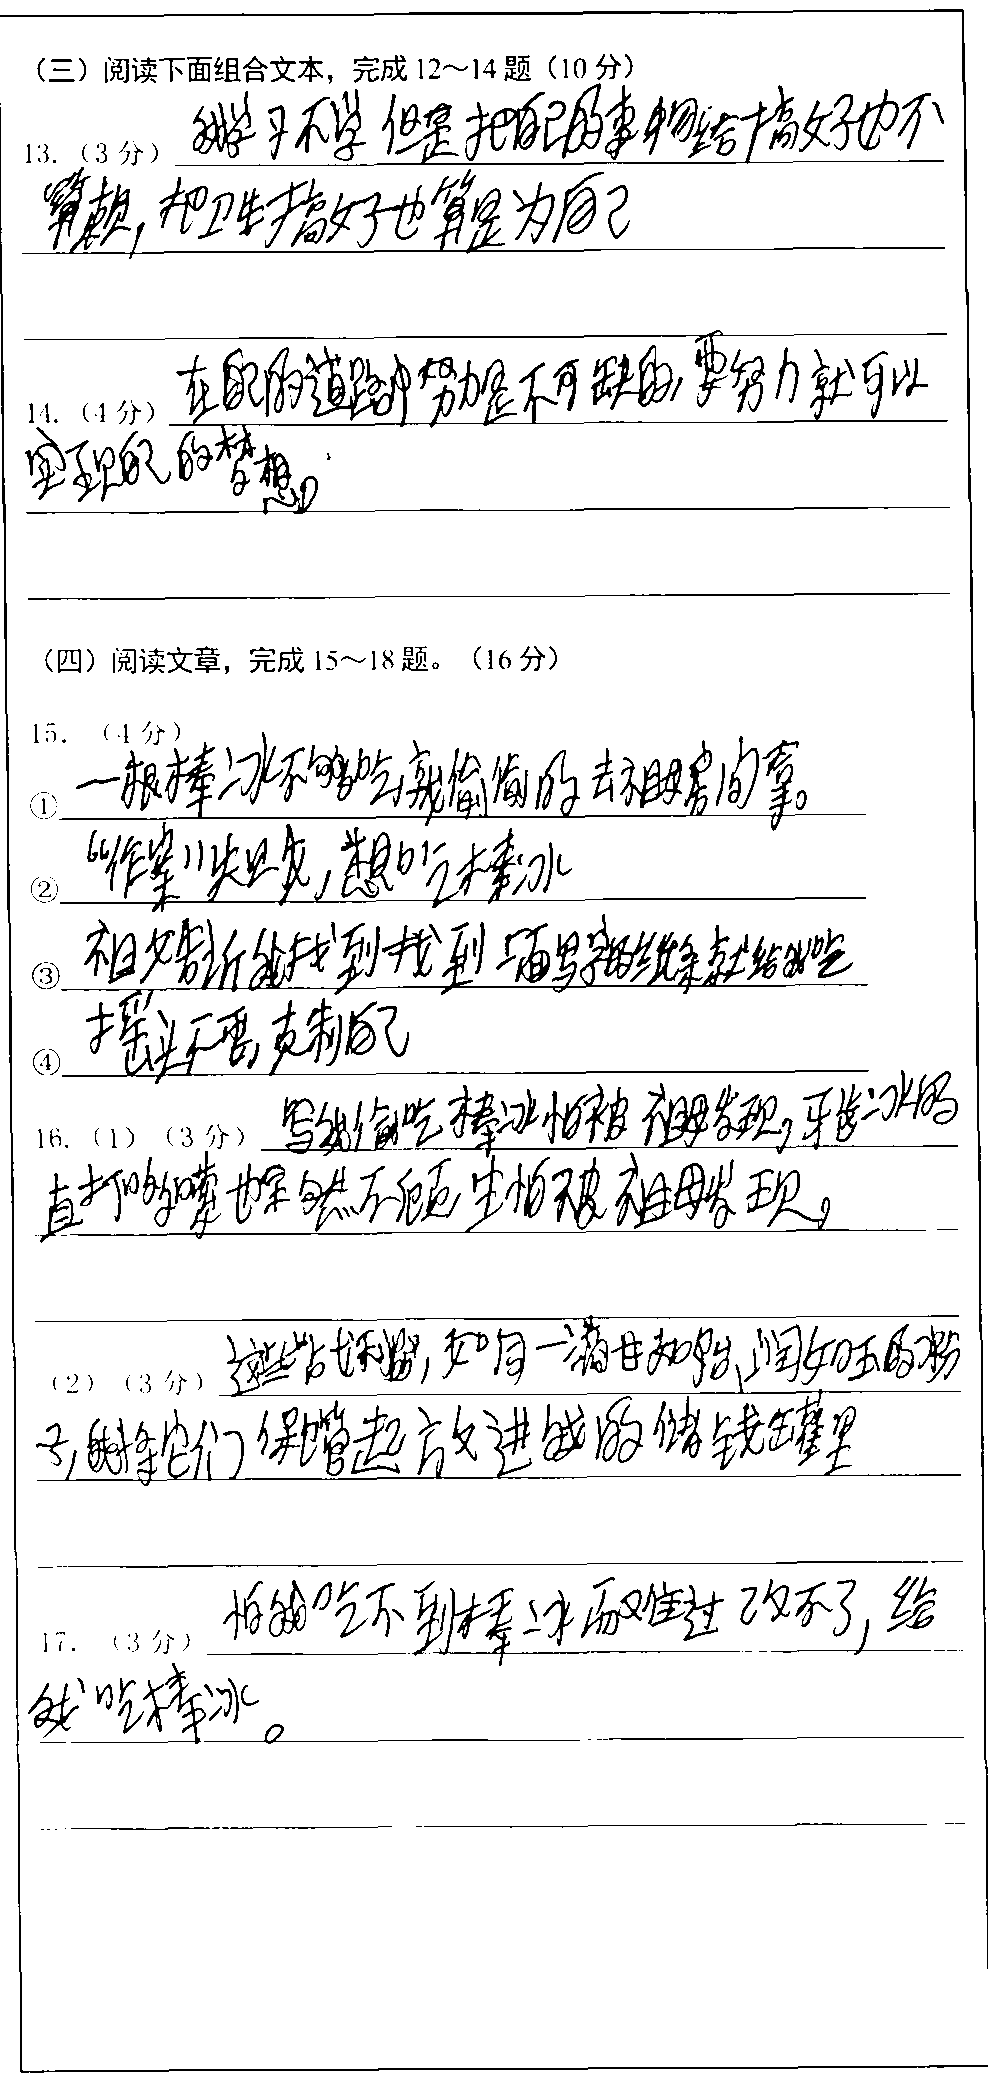 （三）阅读下面组合文本，完成12～14题（10分）
13.（3分） 我学习不学但是把自己的事物给搞好也不
算赖，把卫生搞好也算是为自己
14.（4分） 在自己的道路中努力是不可缺的，要努力就可以
实现自己的梦想。
（四）阅读文章，完成15～18题。（16分）
15.（4分）
① 一根棒冰不够吃，就偷偷的去祖母房间拿。
② “作案”失败，想吃棒冰
③ 祖父告诉我找到找到一面写字的纸条就给我吃
④ 摇头不要，克制自己
16.（1）（3分） 写我偷吃棒冰怕被祖母发现，牙齿冰的
直打哆嗦也全然不顾生怕被祖母发现，
（2）（3分） 这些战利品，如同一滴甘如饴、润如玉的
子，我将它们保管起放进我的储钱罐里
17.（3分） 怕我吃不到棒冰而难过改不了，给
我吃棒冰。